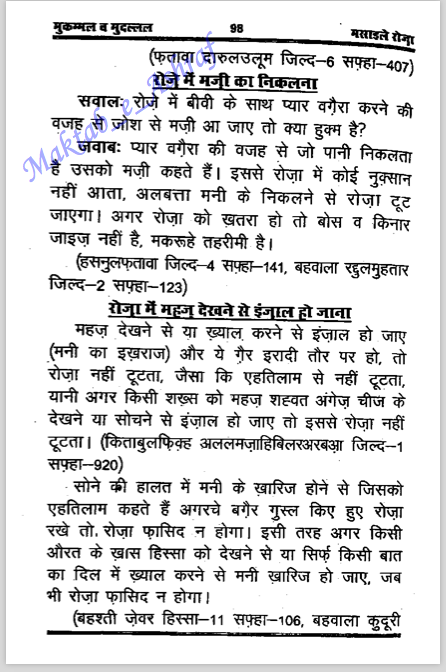 मुकम्मल व मुदल्लल 98 मसाइले रोज़ा
(फ़तावा दारुलउलूम जिल्द-6 सफ़्हा-407)
रोज़े में मज़ी का निकलना
सवालः रोज़े में बीवी के साथ प्यार वग़ैरा करने की
वजह से जोश से मज़ी आ जाए तो क्या हुक्म है?
जवाबः प्यार वग़ैरा की वजह से जो पानी निकलता
है उसको मज़ी कहते हैं। इससे रोज़ा में कोई नुक़्सान
नहीं आता, अलबत्ता मनी के निकलने से रोज़ा टूट
जाएगा। अगर रोज़ा को ख़तरा हो तो बोस व किनार
जाइज़ नहीं है, मकरूहे तहरीमी है।
(हसनुलफ़तावा जिल्द-4 सफ़्हा-141, बहवाला रद्दुलमुहतार
जिल्द-2 सफ़्हा-123)
रोज़ा में महज़ देखने से इंज़ाल हो जाना
महज़ देखने से या ख़्याल करने से इंज़ाल हो जाए
(मनी का इख़राज) और ये ग़ैर इरादी तौर पर हो, तो
रोज़ा नहीं टूटता, जैसा कि एहतिलाम से नहीं टूटता,
यानी अगर किसी शख़्स को महज़ शह्वत अंगेज़ चीज के
देखने या सोचने से इंज़ाल हो जाए तो इससे रोज़ा नहीं
टूटता। (किताबुलफ़िक़्ह अललमज़ाहिबिलरअरबआ जिल्द-1
सफ़्हा-920)
सोने की हालत में मनी के ख़ारिज होने से जिसको
एहतिलाम कहते हैं अगरचे बग़ैर गुस्ल किए हुए रोज़ा
रखे तो. रोज़ा फ़ासिद न होगा। इसी तरह अगर किसी
औरत के ख़ास हिस्सा को देखने से या सिर्फ़ किसी बात
का दिल में ख़्याल करने से मनी ख़ारिज हो जाए, जब
भी रोज़ा फ़ासिद न होगा।
(बहश्ती ज़ेवर हिस्सा-11 सफ़्हा-106, बहवाला क़ुदूरी
Maktab_e_Ashraf